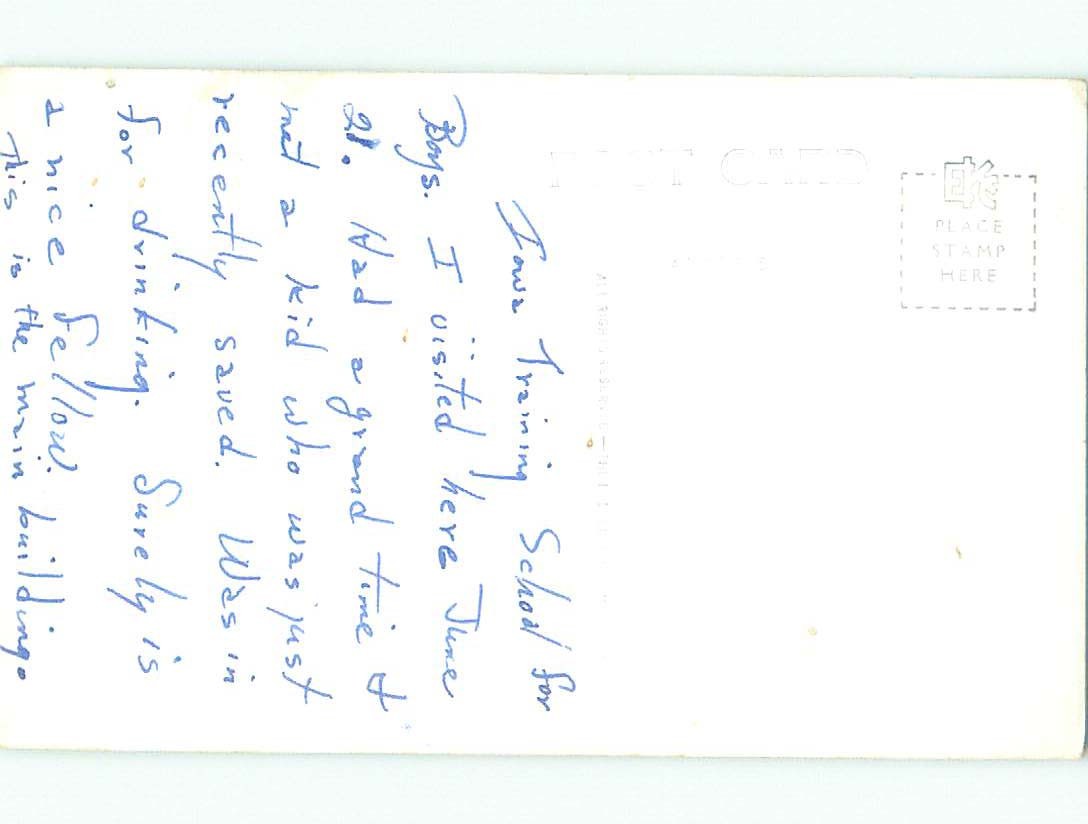 Iowa Training School for
Boys. I visited here June
21. Had a grand time &
met a kid who was just
recently saved. Was in
for drinking. Surely is
a nice fellow.
This is the main building.
POST CARD
ADDRESS
PLACE
STAMP
HERE